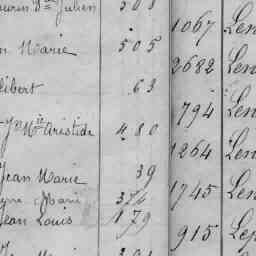 Julien 508
1067 Len
Marie 505
2682 Len
libert 63
794 Len
Jn Mie Aristide 480
1264 Len
Jean Marie 39
Marie 374
1745 Len
Jean Louis 179
915 Lep